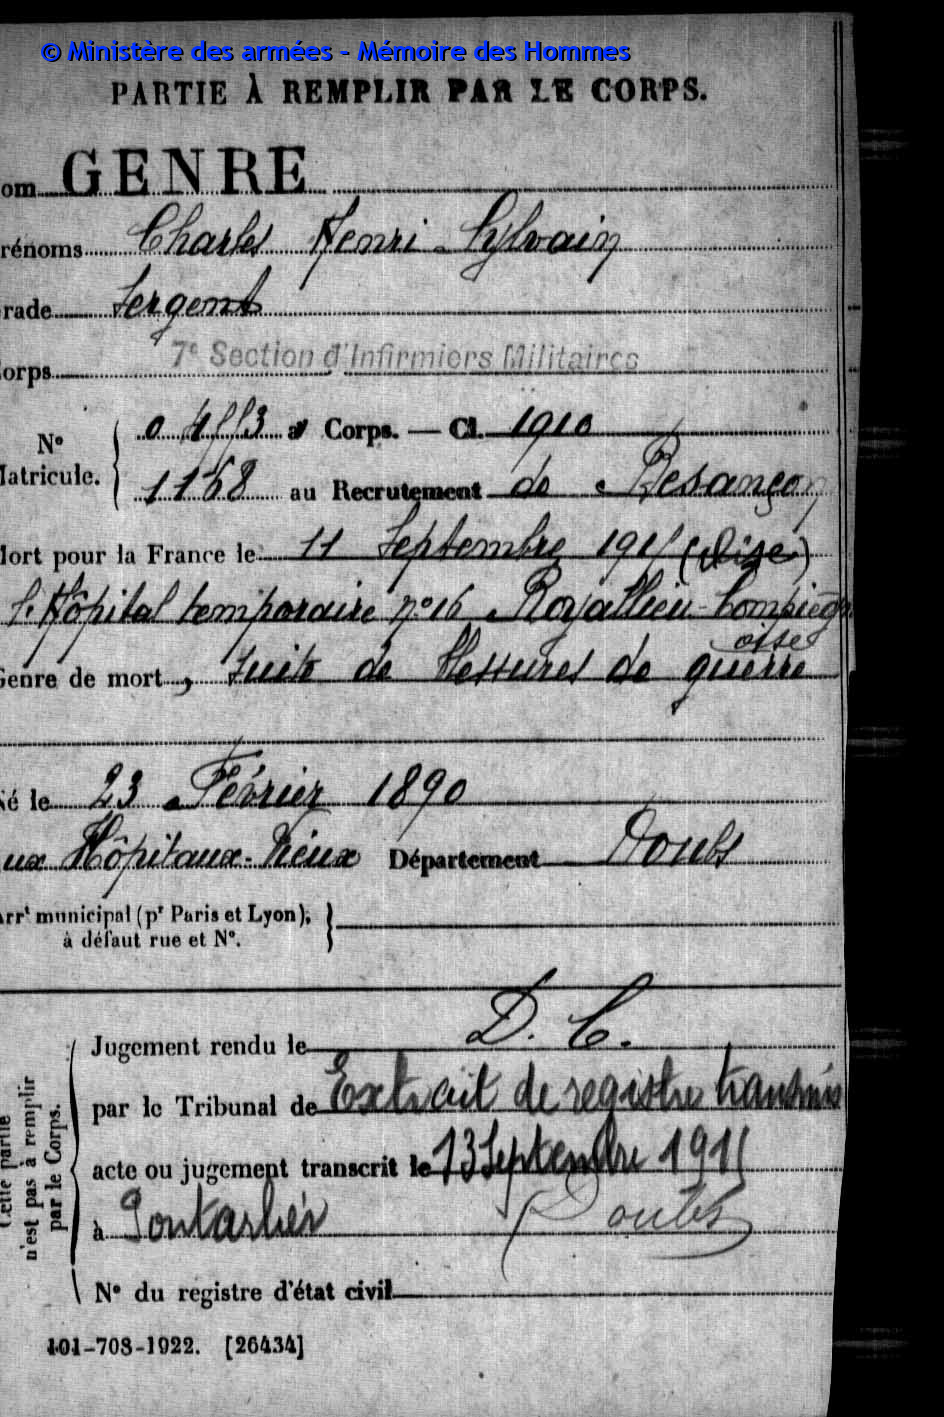 © Ministère des armées - Mémoire des Hommes
PARTIE À REMPLIR PAR LE CORPS.
om GENRE
rénoms Charles Henri-Sylvain
rade Sergent
orps 7e Section d'Infirmiers Militaires
N° Matricule.
au Corps. — Cl. 1910
1168 au Recrutement de Besançon
Mort pour la France le 11 Septembre (Oise)
Hôpital temporaire n°16 Royallieu-Compiègn
oise
Genre de mort, suite de blessures de guerre
Né le 23 Février 1890
ux Hôpitaux-Vieux Département Doubs
Arrt municipal (pr Paris et Lyon),
à défaut rue et N°.
Cette partie
n'est pas à remplir
par le Corps.
Jugement rendu le D. C.
par le Tribunal de Extrait de registre transmis
acte ou jugement transcrit le 13 Septembre
à Pontarlier Doubs
N° du registre d'état civil
101-708-1922. [26434]